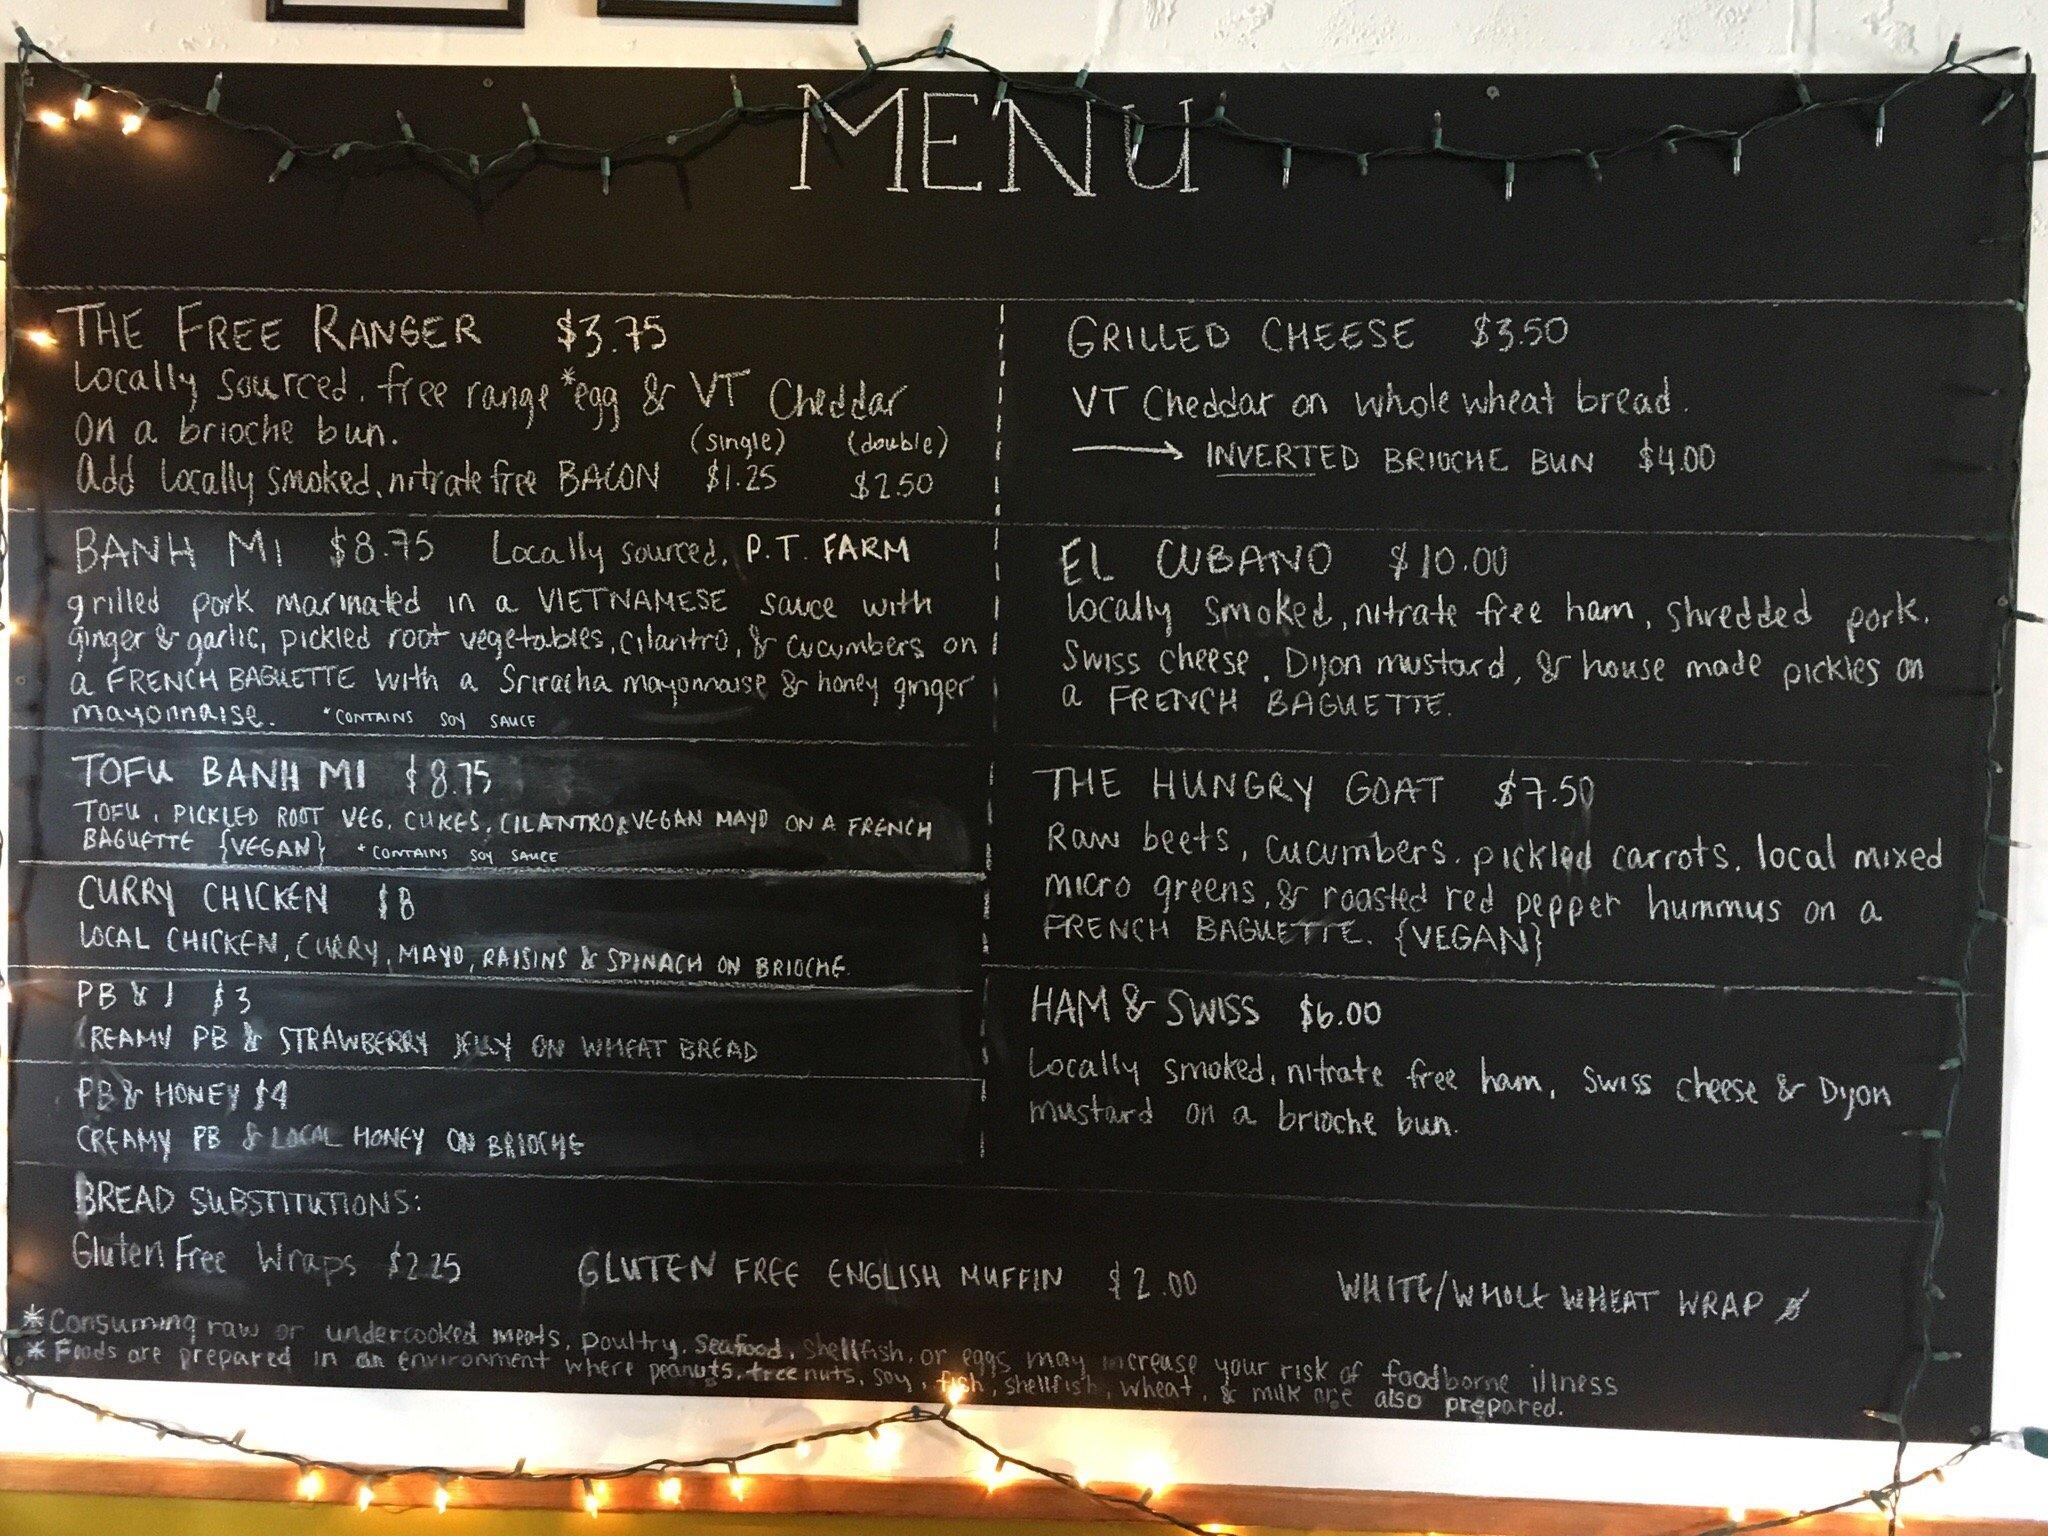 MENU
THE FREE RANGER $3.75
Locally sourced, free range *egg & VT Cheddar
on a brioche bun. (single) (double)
Add locally smoked, nitrate free BACON $1.25 $2.50
BANH MI $8.75 Locally sourced, P.T. FARM
grilled pork marinated in a VIETNAMESE sauce with
ginger & garlic, pickled root vegetables, cilantro, & cucumbers on
a FRENCH BAGUETTE with a Sriracha mayonnaise & honey ginger
mayonnaise. *CONTAINS SOY SAUCE
TOFU BANH MI $8.75
TOFU, PICKLED ROOT VEG, CUKES, CILANTRO & VEGAN MAYO ON A FRENCH
BAGUETTE {VEGAN} *CONTAINS SOY SAUCE
CURRY CHICKEN $8
LOCAL CHICKEN, CURRY, MAYO, RAISINS & SPINACH ON BRIOCHE
PB & J $3
CREAMY PB & STRAWBERRY JELLY ON WHEAT BREAD
PB & HONEY $4
CREAMY PB & LOCAL HONEY ON BRIOCHE
GRILLED CHEESE $3.50
VT Cheddar on whole wheat bread.
→ INVERTED BRIOCHE BUN $4.00
EL CUBANO $10.00
Locally smoked, nitrate free ham, shredded pork,
Swiss cheese, Dijon mustard, & house made pickles on
a FRENCH BAGUETTE.
THE HUNGRY GOAT $7.50
Raw beets, cucumbers, pickled carrots, local mixed
micro greens, & roasted red pepper hummus on a
FRENCH BAGUETTE. {VEGAN}
HAM & SWISS $6.00
Locally smoked, nitrate free ham, Swiss cheese & Dijon
mustard on a brioche bun.
BREAD SUBSTITUTIONS:
Gluten Free Wraps $2.25 GLUTEN FREE ENGLISH MUFFIN $2.00 WHITE/WHOLE WHEAT WRAP
*Consuming raw or undercooked meats, poultry, seafood, shellfish, or eggs may increase your risk of foodborne illness
*Foods are prepared in an environment where peanuts, tree nuts, soy, fish, shellfish, wheat, & milk are also prepared.